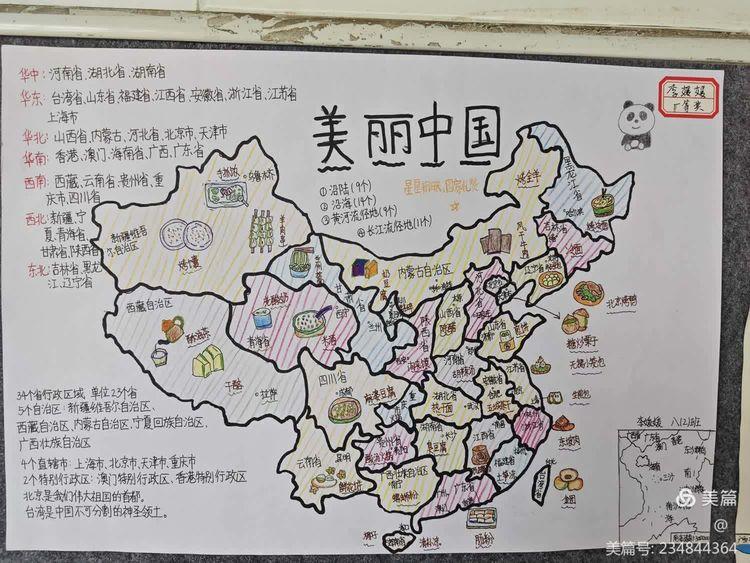 美丽中国
华中:河南省、湖北省、湖南省
华东:台湾省、山东省、福建省、江西省、安徽省、浙江省、江苏省
上海市
华北:山西省、内蒙古、河北省、北京市、天津市
华南:香港、澳门、海南省、广西、广东省
西南:西藏、云南省、贵州省、重
庆市、四川省
西北:新疆、宁
夏、青海省、
甘肃省、陕西省
东北:吉林省、黑龙
江、辽宁省
①沿陆(9个)
②沿海(14个)
③黄河流经地(9个)
④长江流经地(11个)
新疆维吾
尔自治区
烤馕
乌鲁木齐
羊肉串
西藏自治区
酥油茶
干酪
拉萨
老酸奶
青海省
西宁
兰州
内蒙古自治区
奶豆腐
风干牛肉
烤全羊
黑龙江省
吉林省
冷面
辽宁省
北京烤鸭
糖炒栗子
无锡小笼包
生煎包
东坡肉
山西省
陕西省
山东省
河南省
胡辣汤
江苏省
安徽省
湖北省
热干面
四川省
成都
麻婆豆腐
湖南省
长沙
臭豆腐
江西省
福建省
贵州省
云南省
昆明
鲜花饼
广西壮族自治区
南宁
螺蛳粉
广东省
肠粉
台湾省
海南省
椰子
清补凉
34个省行政区域,单位23个省
5个自治区:新疆维吾尔自治区、
西藏自治区、内蒙古自治区、宁夏回族自治区、
广西壮族自治区
4个直辖市:上海市、北京市、天津市、重庆市
2个特别行政区:澳门特别行政区、香港特别行政区
北京是我们伟大祖国的首都。
台湾是中国不可分割的神圣领土。
李媛媛 八(2)班
美篇
@
美篇号:234844364